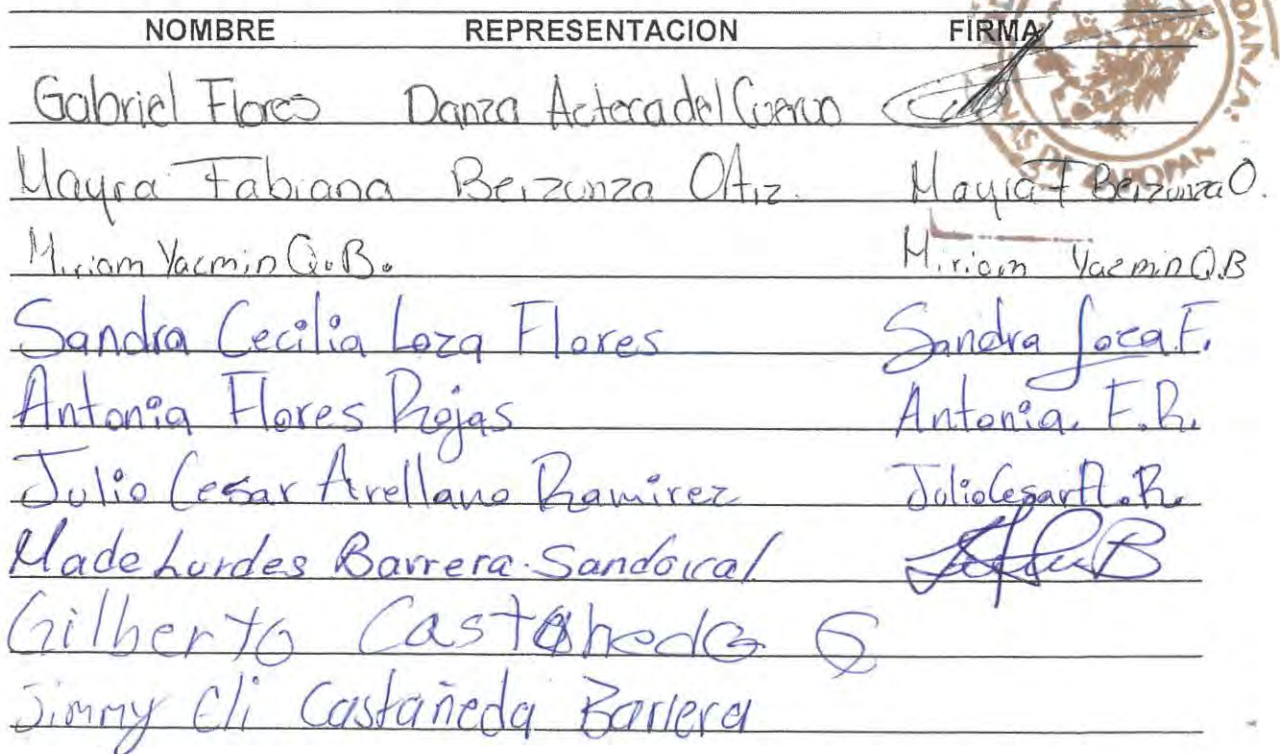 NOMBRE REPRESENTACION FIRMA
Gabriel Flores Danza Azteca del Cuervo
Mayra Fabiana Berzunza Ortiz. Mayra F Berzunza O.
Miriam Yacmin Q.B. Miriam Yazmin Q.B
Sandra Cecilia Loza Flores Sandra Loza F.
Antonia Flores Rojas Antonia. F.R.
Julio Cesar Arellano Ramirez Julio Cesar A.R.
Ma de Lurdes Barrera Sandoval
Gilberto Castañeda G
Jimmy Eli Castañeda Barrera
DANZA.